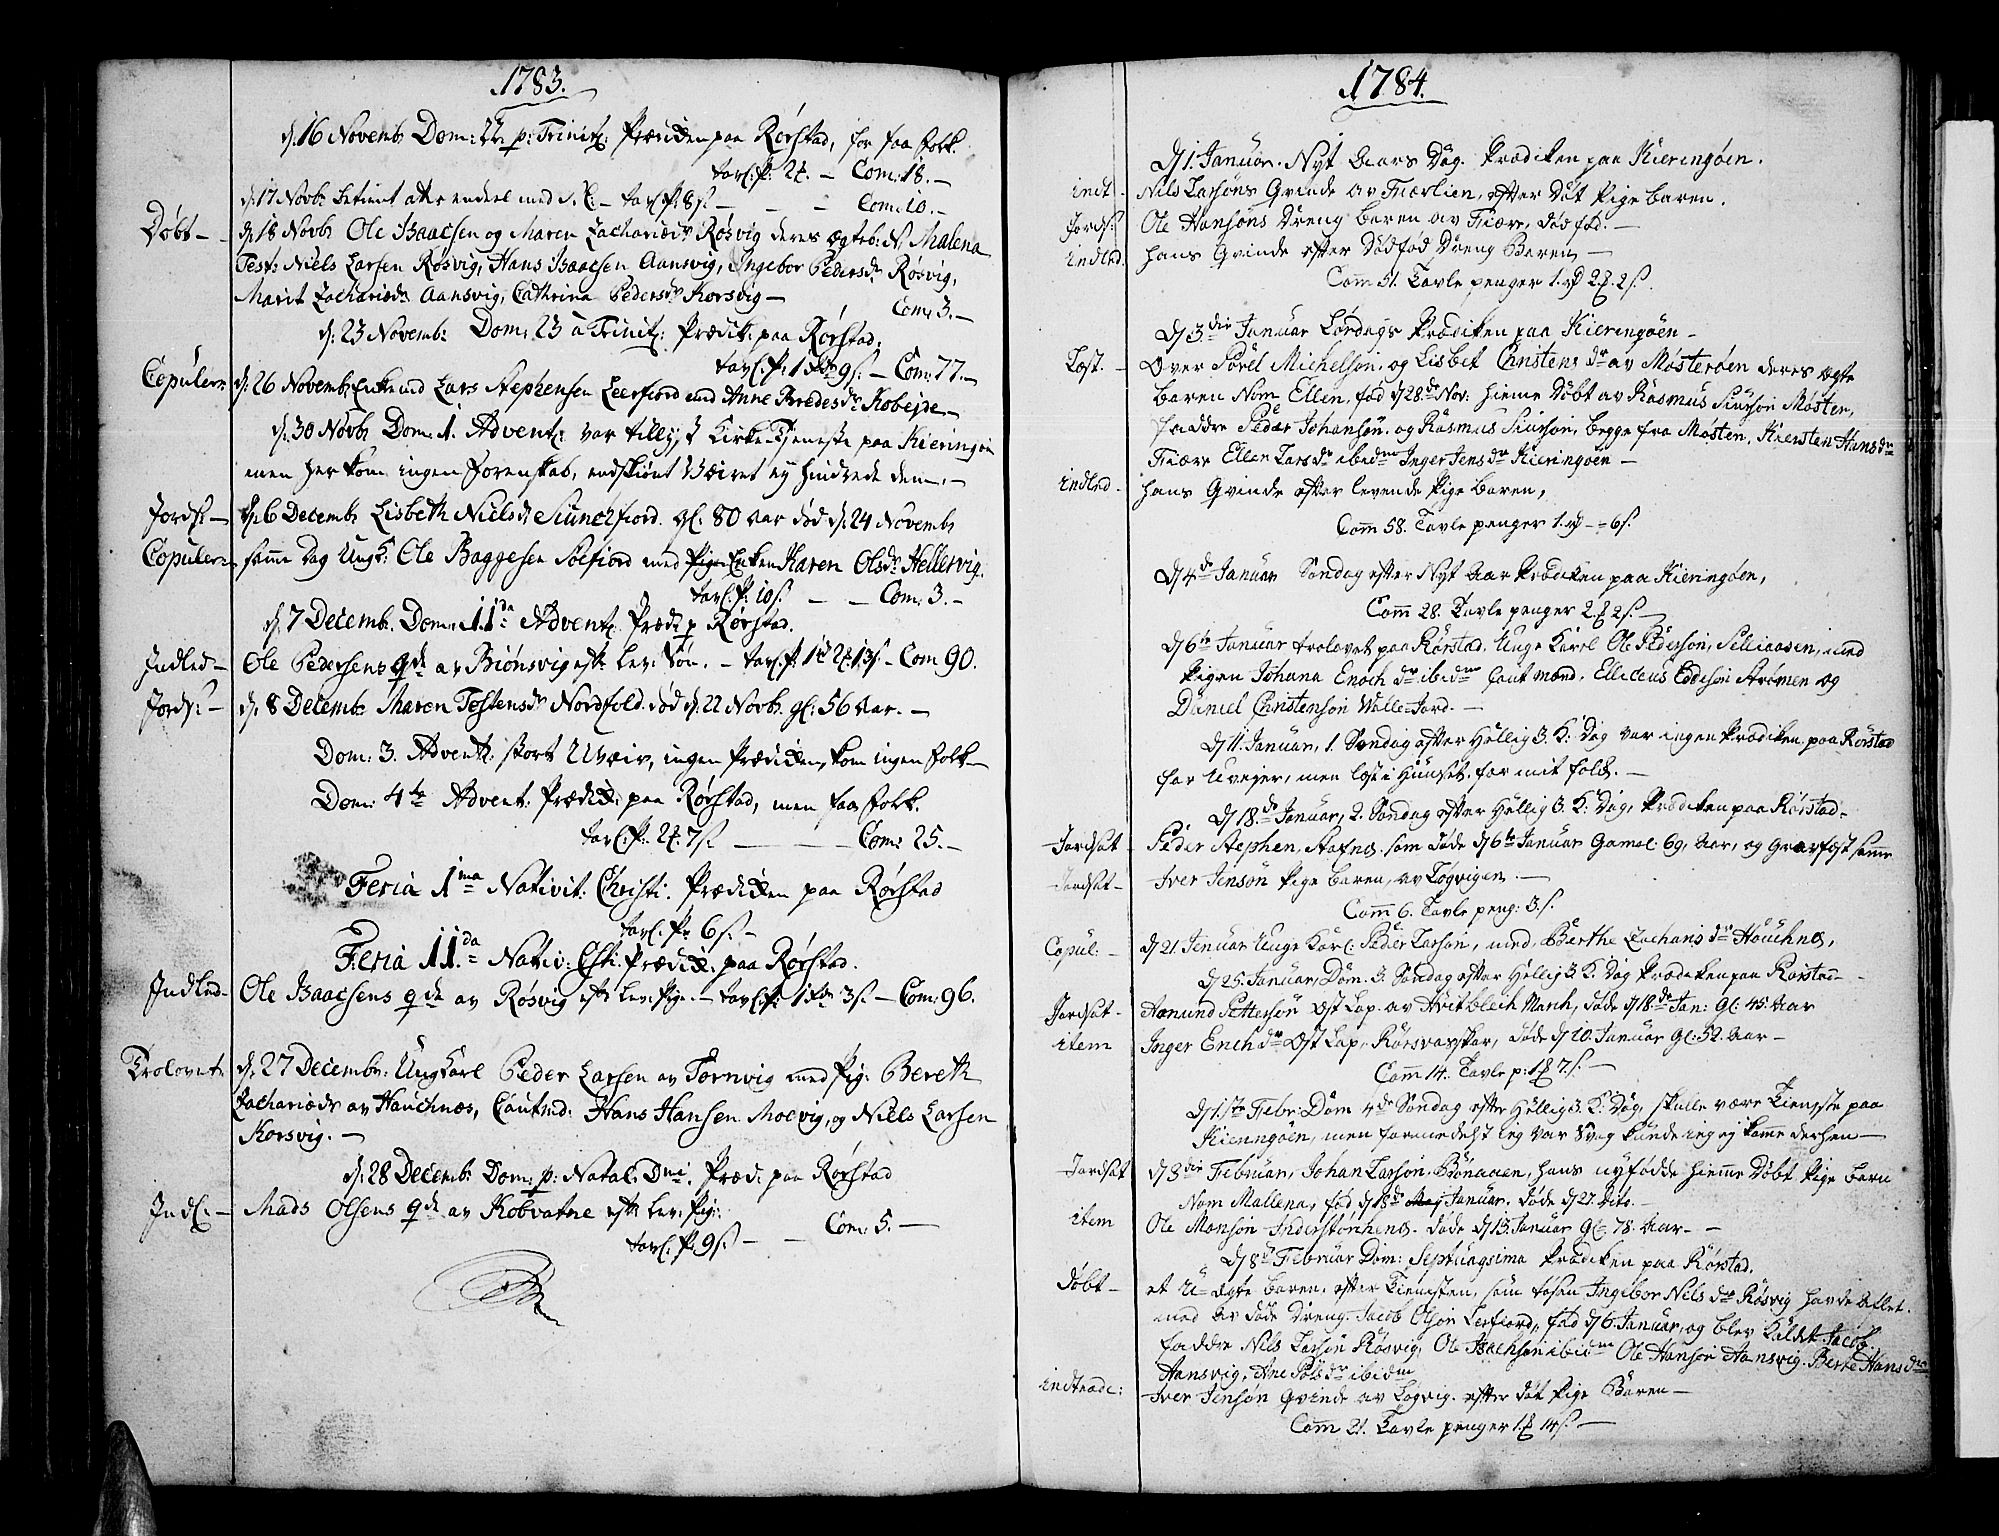 1783.
d. 16 Novemb: Dom: 22 p: Trinit: Prædiken paa Rørstad, for faa folk.
Tavl. P: 2 – Com: 18. –
d. 17 Novb: – Tavl. P: 8 s. – – – Com: 10. –
Døbt – d. 18 Novb: Ole Isaacsen og Maren Zachariæd: Røsvig deres ægteb: N: Malena
Test: Niels Larsen Røsvig, Hans Isaacsen Aansvig, Ingebor Pedersd: Røsvig,
Marit Zachariæd: Aansvig, Cathrina Pedersd: Korsvig – Com: 3. –
d: 23 Novemb: Dom: 23 à Trinit: Prædik: paa Rørstad.
Tavl. P: 1 9 s. – Com: 77. –
Copuler: d. 26 Novemb: Enkemd Lars Stephensen Leerfiord med Anne Bredesd: Kobejde –
d. 30 Novb: Dom: 1. Advent: var tillyst Kirke-Tjeneste paa Kieringøe
men her kom ingen forenskab, endskiønt Væiret ej hindrede dem. –
Jords: – d. 6 Decemb: Lisbeth Nielsd: fiord. gl: 80 Aar død d. 24 Novemb:
Copuler: samme Dag Ungk: Ole Baggesen Sørfiord med Enken Karen Olsd: Hellervig.
Tavl. P: 10 s. – – Com: 3. –
d. 7 Decemb. Dom: II da Advent: Præd: p: Rørstad.
Indled – Ole Pedersens Qde av Biønsvig eft: lev: Søn. – Tavl. P: 1 2 13 s – Com 90.
Jords: – d. 8 Decemb: Maren Tostensd: Nordfold. død d: 22 Novb. gl: 56 Aar. –
Dom: 3. Advent: stort Uvæir, ingen Prædiken, kom ingen folk –
Dom: 4te Advent: Prædik: paa Rørstad, men faa folk.
Tavl. P: 2 7 s. – – – Com: 25. –
Feria 1ma Nativit: Christi: Prædiken paa Rørstad
Tavl. P: 6 s. –
Feria II da Nativ: Chti: Prædik. paa Rørstad.
Indled – Ole Isaacsens Qde av Røsvig eft: lev: Pige. – Tavl. P: 1 3 s. – Com: 96.
Trolovet: d. 27 Decemb: Ungkarl Peder Larsen av Tornvig med Pig: Bereth
Zachariæd: av Hauchnæs, Cautmd: Hans Hansen Moevig, og Niels Larsen
Korsvig. –
d: 28 Decemb: Dom: p: Natal: Dmi: Præd: paa Rørstad
Indl. – Mads Olsens Qde av Kobvatne eft: lev: Pig:
Com: 5. –
Tavl. P: 9 s. – –
1784.
d 1. Januar. Nyt Aars Dag. Prædiken paa Kieringøen.
indt – Nils Larsøns Qvinde av Fiærlien, efter Døt Pige Baren.
Jords: Ole Hansøns Dreng Baren av Fiære, død fød. –
indled. hans Qvinde efter Dødfød Dreng Baren –
Com 51. Tavle penger 1. rd 2 2 s.
d 3die Januar Lørdags Prædiken paa Kieringøen –
Løst. – Over Sørel Michelsøn, og Lisbet Christensdr av Møsterøen deres ægte
Baren Nom Ellen, fød d 28de Nov: hieme Døbt av Rasmus Siursøn Møsten,
faddre Peder Johansøn, og Rasmus Siursøn, begge fra Møsten, Kiersten Hansdr
Fiære Ellen Larsdr ibidm Inger Jensdr Kieringøen –
indled – hans Qvinde efter levende Pige Baren,
Com 58. Tavle penger 1. rd – = 6 s.
d 4de Januar Søndag efter Nyt Aar Prædiken paa Kieringøen,
Com 28. Tavle penger 2 2 s. –
d 6te Januar trolovet paa Rørstad. Unge Karl Ole Pedersøn, Selliaasen, med
Pigen Johana Enochdr ibidm Caut mænd. Ellideus Eddesøn Strømen og
Daniel Christensøn Walle-Jord. –
d 11. Januar, 1. Søndag efter Hellig 3. K: Dag var ingen Prædiken paa Rørstad
for Uvejer, men løst i Huuset. for mit folk. –
d 18.de Januar, 2. Søndag efter Hellig 3 K: Dag, Prædiken paa Rørstad –
Jordsat – Peder Stephen, som døde d 6te Januar Gamel 69, Aar, og Gravfæst samme
Jordsat – Iver Jensøn Pige Baren, av Løgvigen –
Com 6. Tavle peng: 3. s.
Copul: – d 21. Januar Unge Karl: Peder Larsøn, med, Berthe Zacharisdr Houchnes,
d 25. Januar, Dom. 3. Søndag efter Hellig 3 K: Dag Prædiken paa Rørstad –
Jordsat – Aamund Pettersøn Øst Lap. av Hvitblich March, døde d 18.de Jan: Gl: 45 Aar
item Inger Enchdr Øst Lap, Rørsvaxskar, døde d 10. Januar gl: 52. Aar –
Com 14. Tavle p: 1 7 s. –
d 1.ste Febr: Dom 4de Søndag efter Hellig 3. K: Dag, skulle være Tieneste paa
Kieringøen, men formedelst ieg var Svag kunde ieg ej kome derhen –
Jordsat d 3die Februar, Johan Larsøn, Bønaaen, hans nyfødde hieme Døbt Pige Barn
Nom Mallena, fød d Januar. døde d 27. Dito. –
item Ole Monsøn – døde d 13. Januar gl: 78. Aar – –
d 8de Februar Dom: Septuagsima Prædiken paa Rørstad.
døbt – et U-ægte Baren, efter Tienesten, som tøsen Ingebor Nilsdr Røsvig havde Avlet.
med av døde Dreng. Jacob Olsøn Lerfiord, fød d 6 Januar, og blev Kaldet Jacob.
faddre Nils Larsøn Røsvig, Ole Isachsøn ibidm Ole Hansøn Aansvig. Berte Hansdr
Aansvig, Ane ibidm
indtrade: Iver Jensøn Qvinde av Løgvig. efter døt Pige Baren –
Com 21. Tavle penger 1 14 s. –